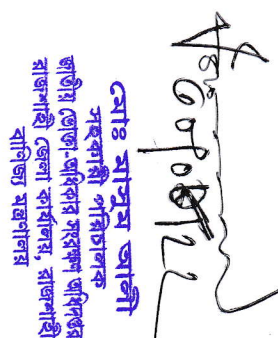 মোঃ মাসুম আলী
সহকারী পরিচালক
জাতীয় ভোক্তা-অধিকার সংরক্ষণ অধিদপ্তর
রাজশাহী জেলা কার্যালয়, রাজশাহী
বাণিজ্য মন্ত্রণালয়